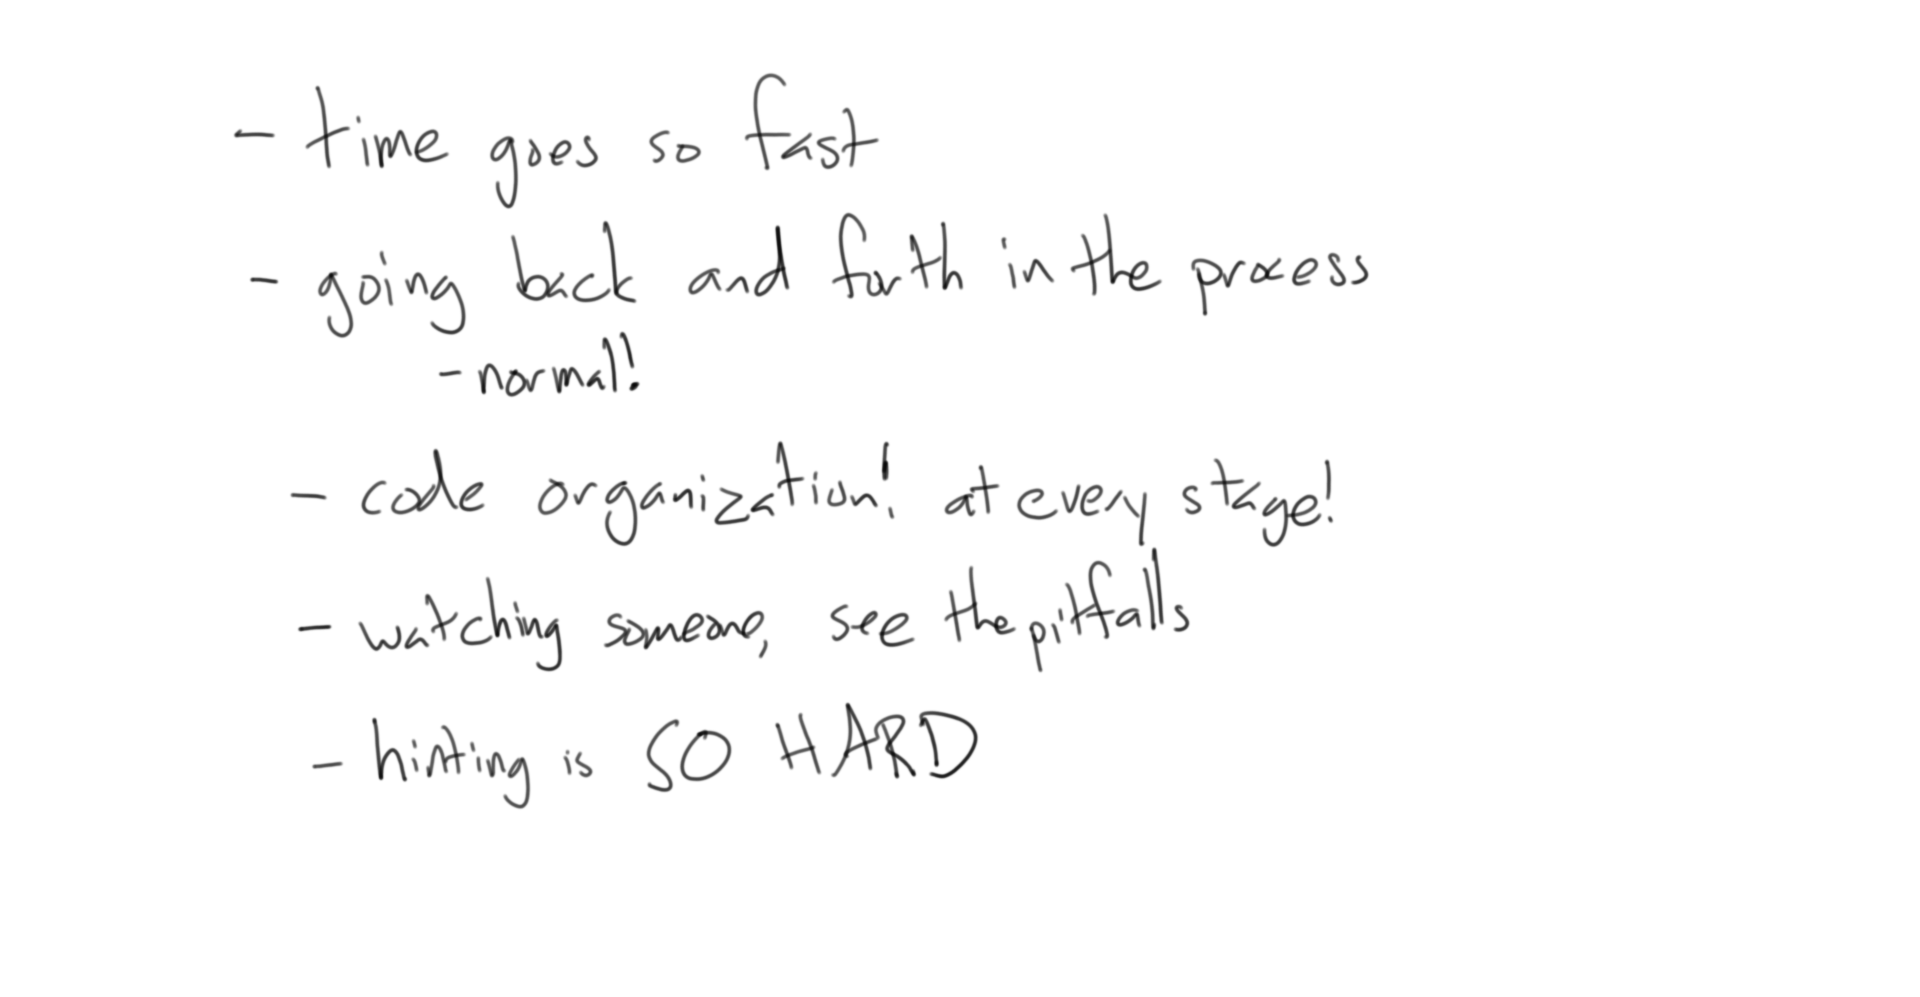 - time goes so fast
- going back and forth in the process
- normal!
- code organization! at every stage!
- watching someone, see the pitfalls
- hinting is SO HARD